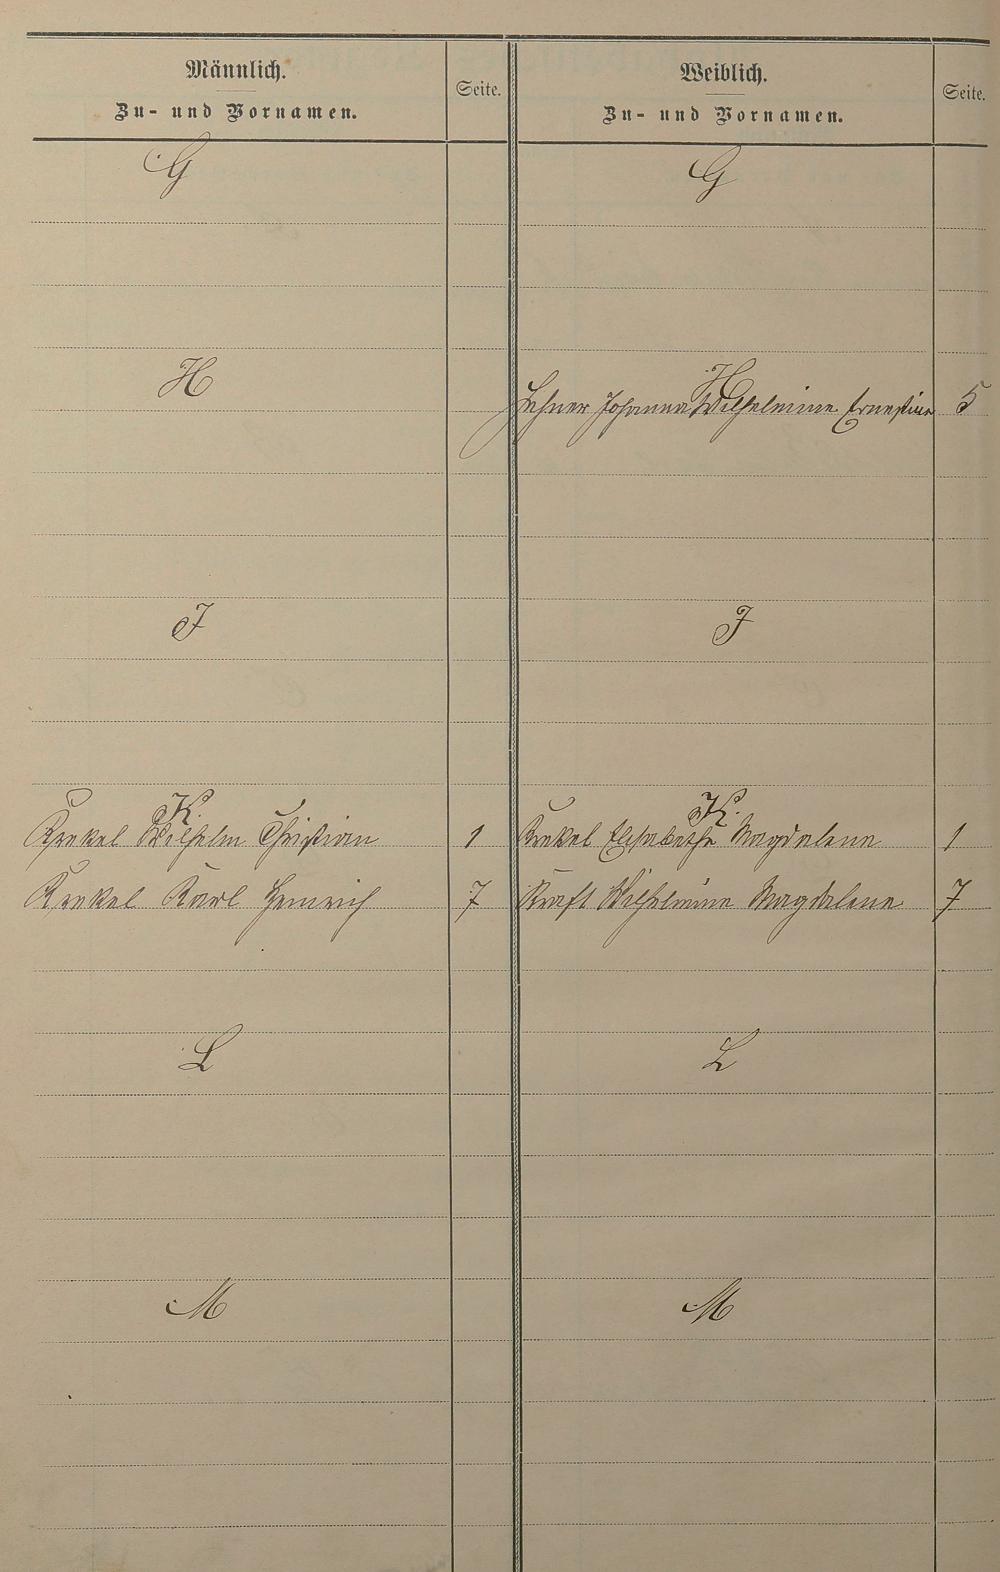 Männlich.
Zu- und Vornamen.
Seite.
Weiblich.
Zu- und Vornamen.
Seite.
G
G
H
H
Johanna Wilhelmine Ernestine 5
J
J
K.
K.
Krekel Wilhelm Christian 1
Krekel Elisabethe Magdalene 1
Krekel Karl Heinrich 7
Kraft Wilhelmine Magdalene 7
L
L
M
M